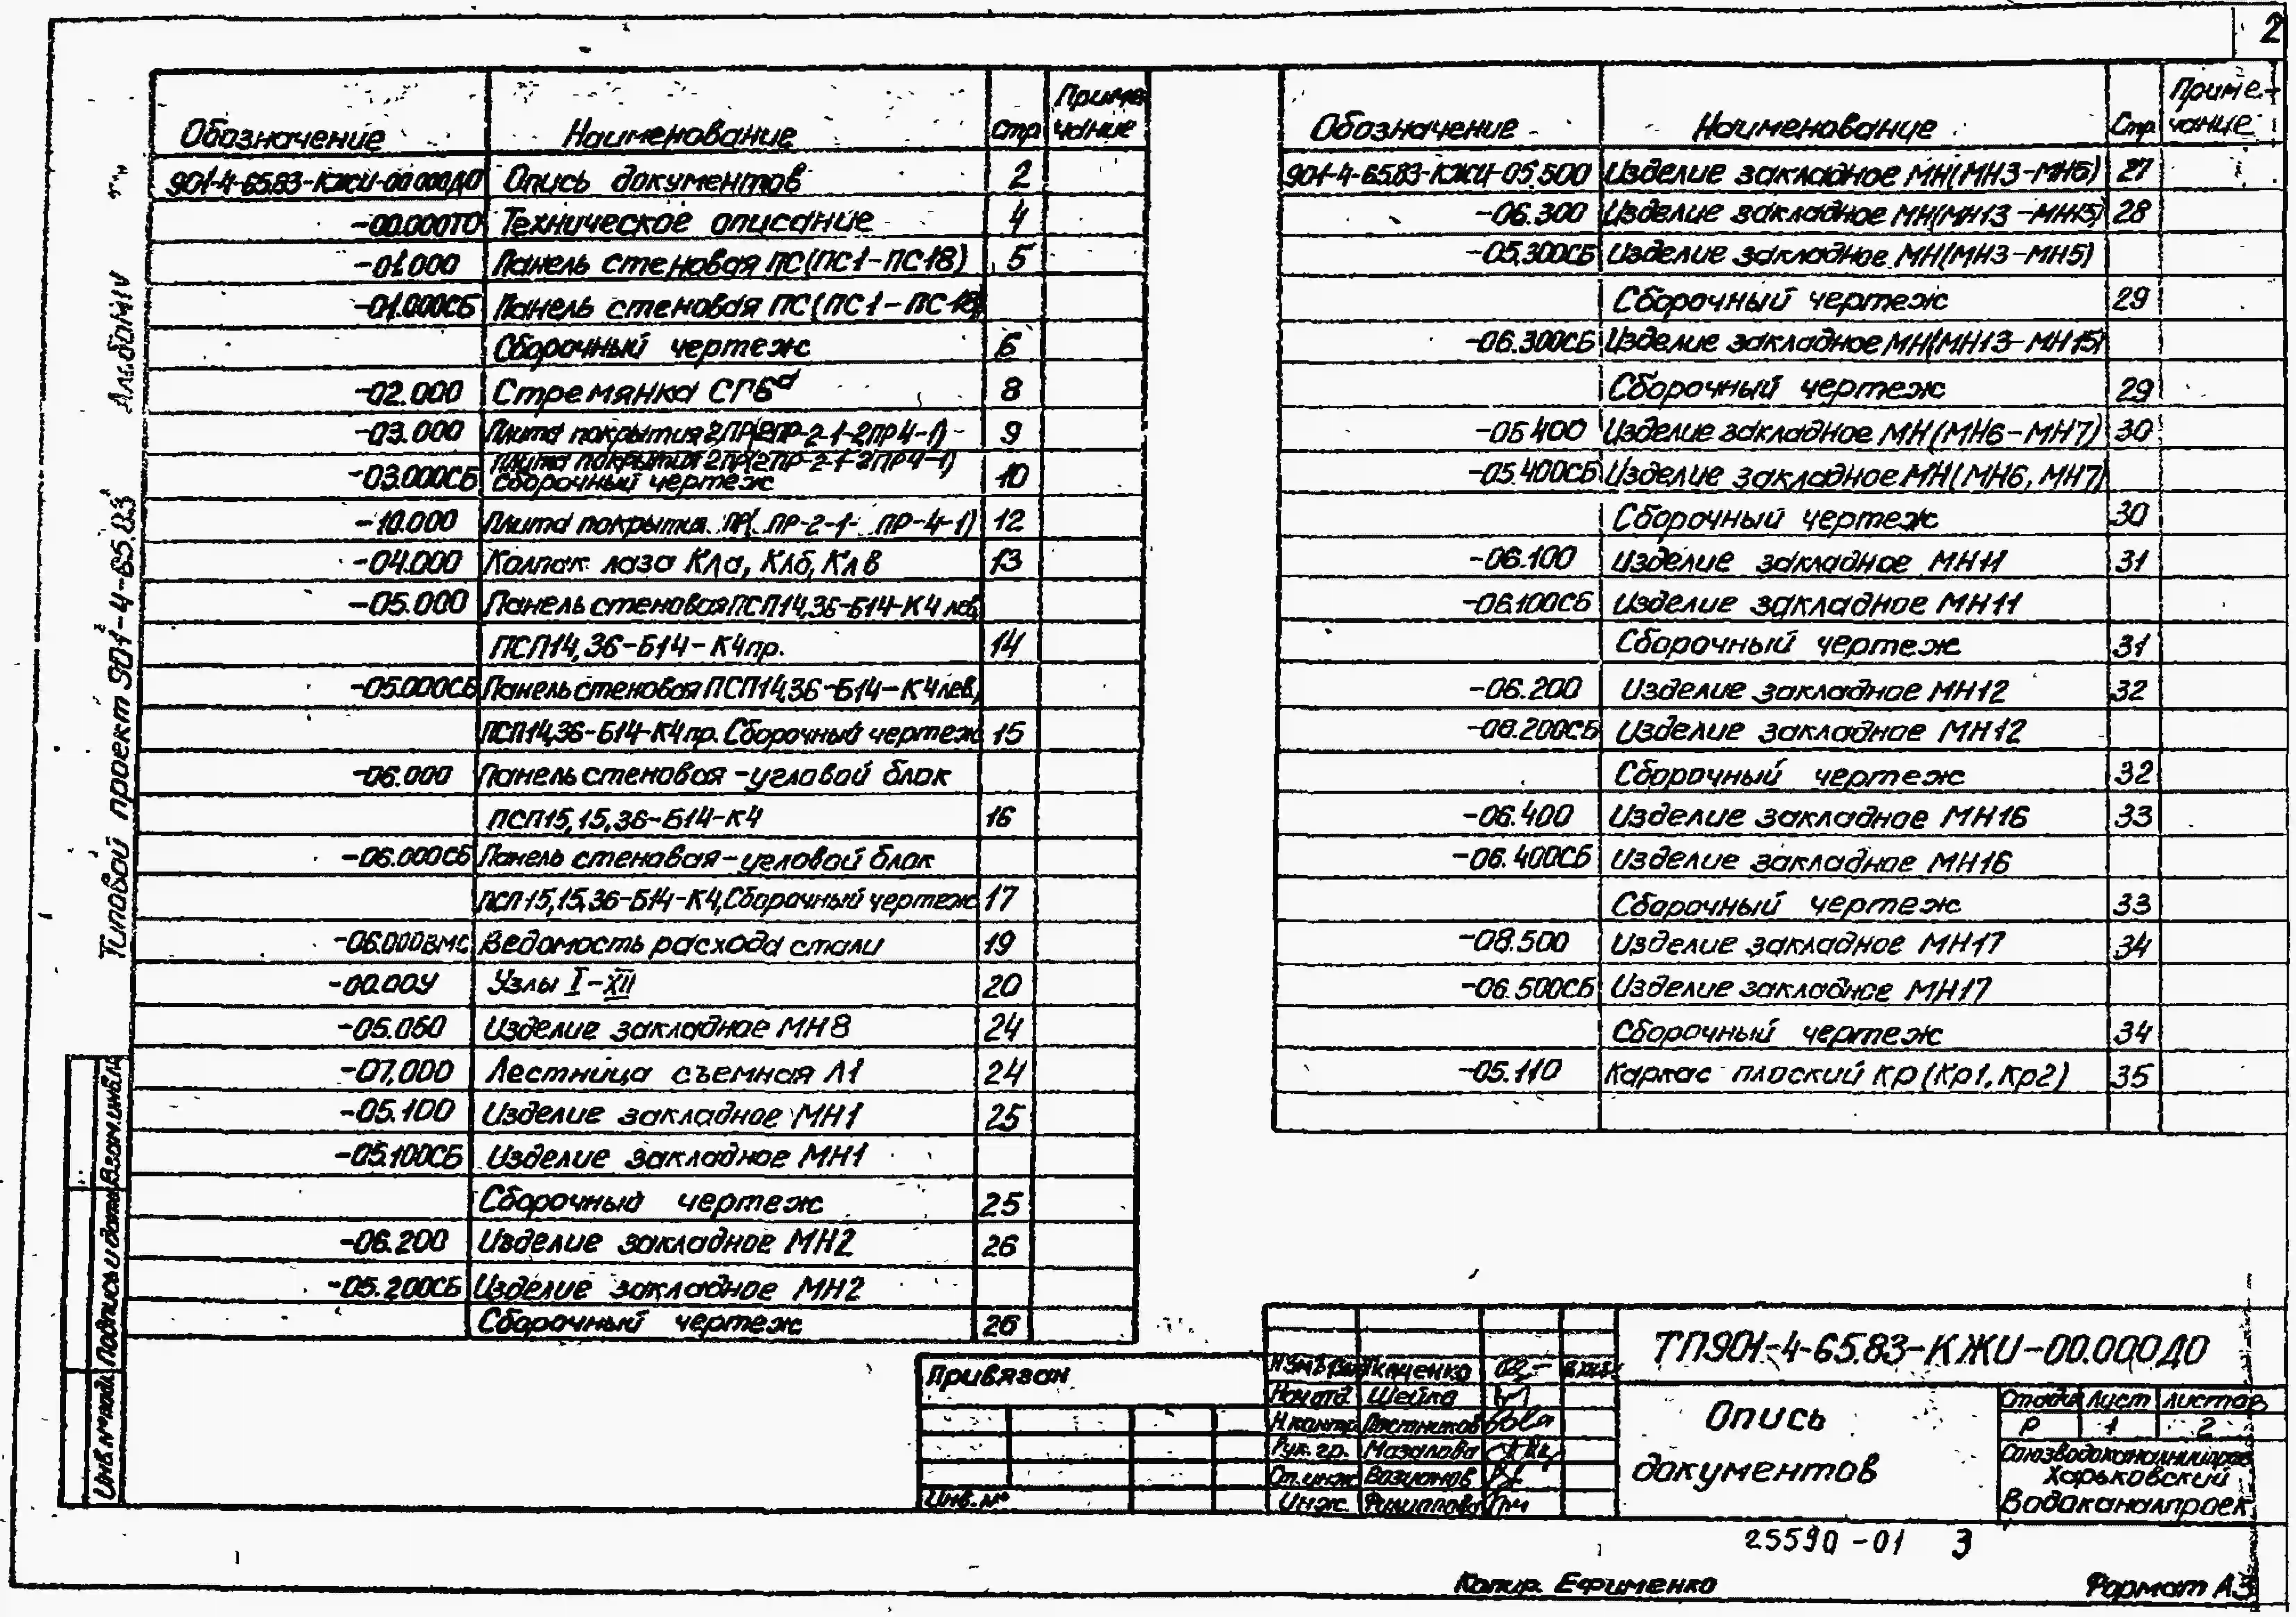 2
Обозначение Наименование Стр Приме
чание
901-4-65.83-КЖИ-00.000ДО Опись документов 2
-00.000ТО Техническое описание 4
-01.000 Панель стеновая ПС(ПС1-ПС18) 5
-01.000СБ Панель стеновая ПС(ПС1-ПС18)
Сборочный чертеж 6
-02.000 Стремянка СГ6а 8
-03.000 Плита покрытия 2ПР(2ПР-2-1-2ПР4-1) 9
-03.000СБ Плита покрытия 2ПР(2ПР-2-1-2ПР4-1)
Сборочный чертеж 10
-10.000 Плита покрытия ПР( ПР-2-1- ПР-4-1) 12
-04.000 Колпак лаза КЛа, КЛб, КЛв 13
-05.000 Панель стеновая ПСП14,36-Б14-К4 лев,
ПСП14,36-Б14-К4пр. 14
-05.000СБ Панель стеновая ПСП14,36-Б14-К4лев,
ПСП14,36-Б14-К4пр. Сборочный чертеж 15
-06.000 Панель стеновая-угловой блок
ПСП15,15,36-Б14-К4 16
-06.000СБ Панель стеновая-угловой блок
ПСП15,15,36-Б14-К4, Сборочный чертеж 17
-06.000ВМС Ведомость расхода стали 19
-00.00У Узлы I-XII 20
-05.060 Изделие закладное МН8 24
-07.000 Лестница съемная Л1 24
-05.100 Изделие закладное МН1 25
-05.100СБ Изделие закладное МН1
Сборочный чертеж 25
-06.200 Изделие закладное МН2 26
-05.200СБ Изделие закладное МН2
Сборочный чертеж 26
Обозначение Наименование Стр Приме-
чание
901-4-65.83-КЖИ-05.500 Изделие закладное МН(МН3-МН5) 27
-06.300 Изделие закладное МН(МН13-МН15) 28
-05.300СБ Изделие закладное МН(МН3-МН5)
Сборочный чертеж 29
-06.300СБ Изделие закладное МН(МН13-МН15)
Сборочный чертеж 29
-05.400 Изделие закладное МН(МН6-МН7) 30
-05.400СБ Изделие закладное МН(МН6, МН7)
Сборочный чертеж 30
-06.100 Изделие закладное МН11 31
-06.100СБ Изделие закладное МН11
Сборочный чертеж 31
-06.200 Изделие закладное МН12 32
-06.200СБ Изделие закладное МН12
Сборочный чертеж 32
-06.400 Изделие закладное МН16 33
-06.400СБ Изделие закладное МН16
Сборочный чертеж 33
-08.500 Изделие закладное МН17 34
-06.500СБ Изделие закладное МН17
Сборочный чертеж 34
-05.110 Каркас плоский КР(Кр1, Кр2) 35
Типовой проект 901-4-65.83 Альбом IV
Взам.инв.№
Подпись и дата
Инв.№ подл.
Привязан
Инв.№
Ткаченко
Нач.отд. Шейка
Н.контр. Постников
Рук.гр. Мазалова
Ст.инж.
Инж. Филиппова
ТП901-4-65.83-КЖИ-00.000ДО
Опись
документов
Стадия Лист Листов
Р 1 2
Союзводоканалниипроект
Харьковский
Водоканалпроект
25590-01 3
Копир. Ефименко
Формат А3